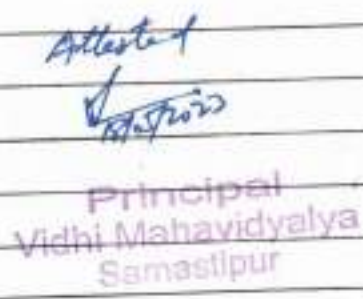 Attested
Principal
Vidhi Mahavidyalya
Samastipur